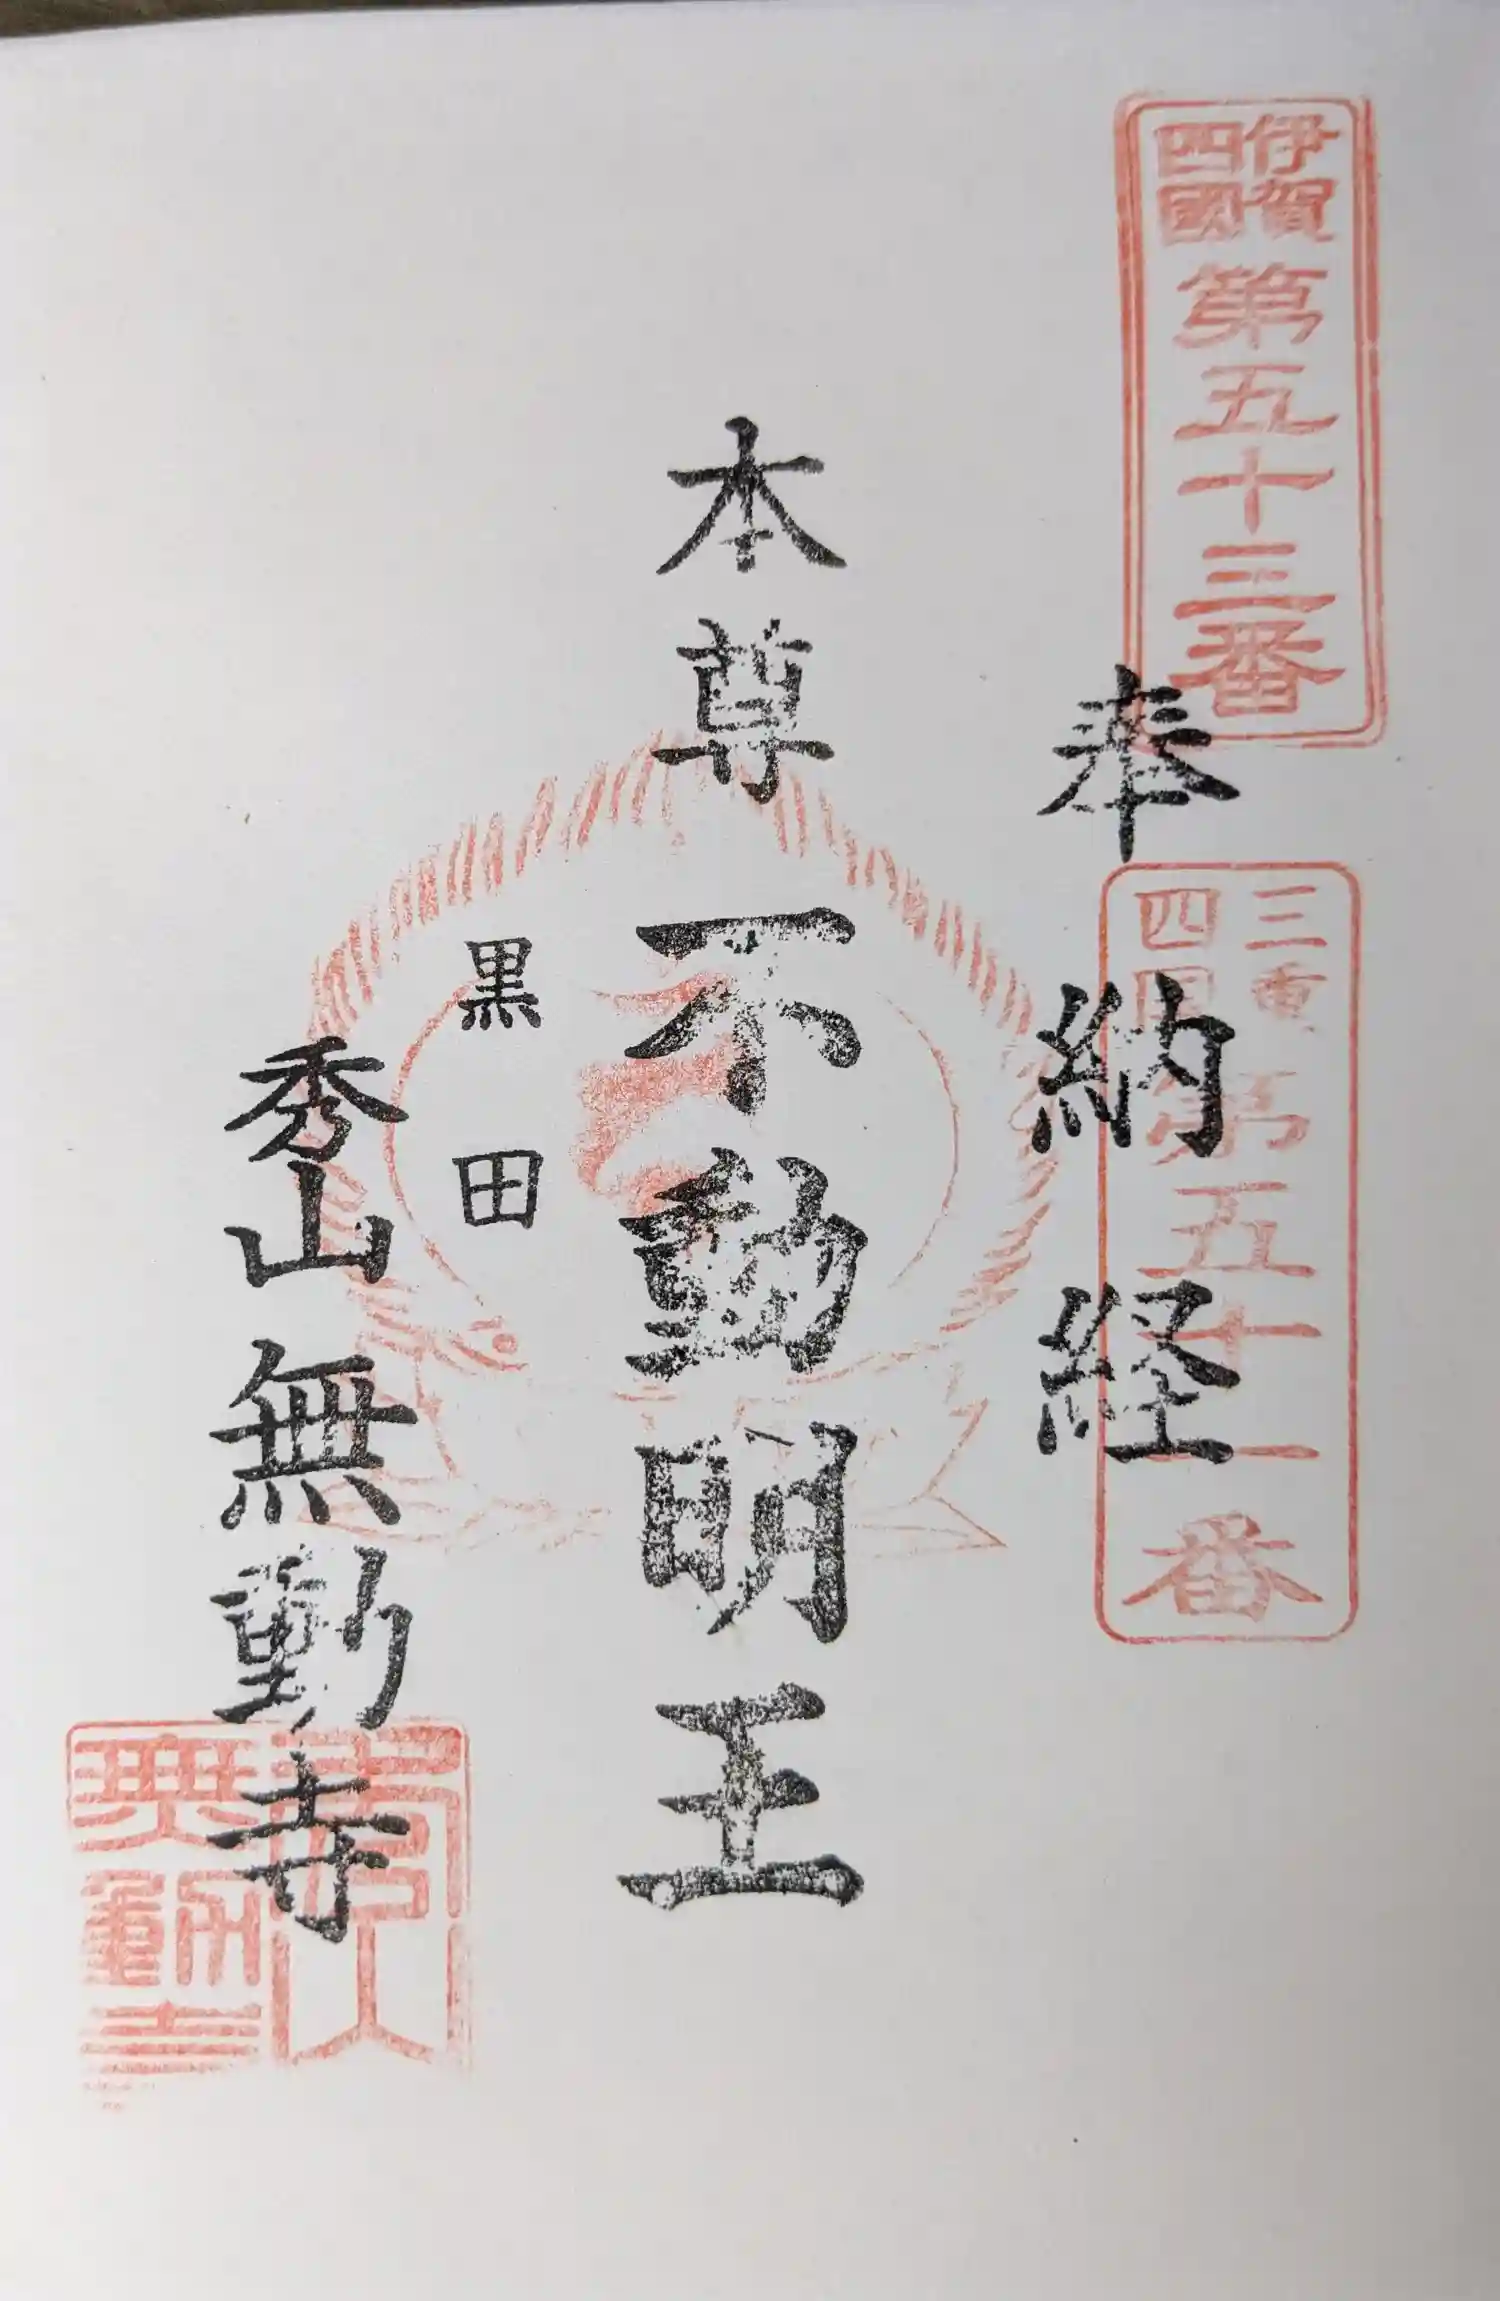 伊賀四國第五十三番
三重四国第五十一番
奉納経
本尊不動明王
黒田
秀山無動寺
秀山無動寺